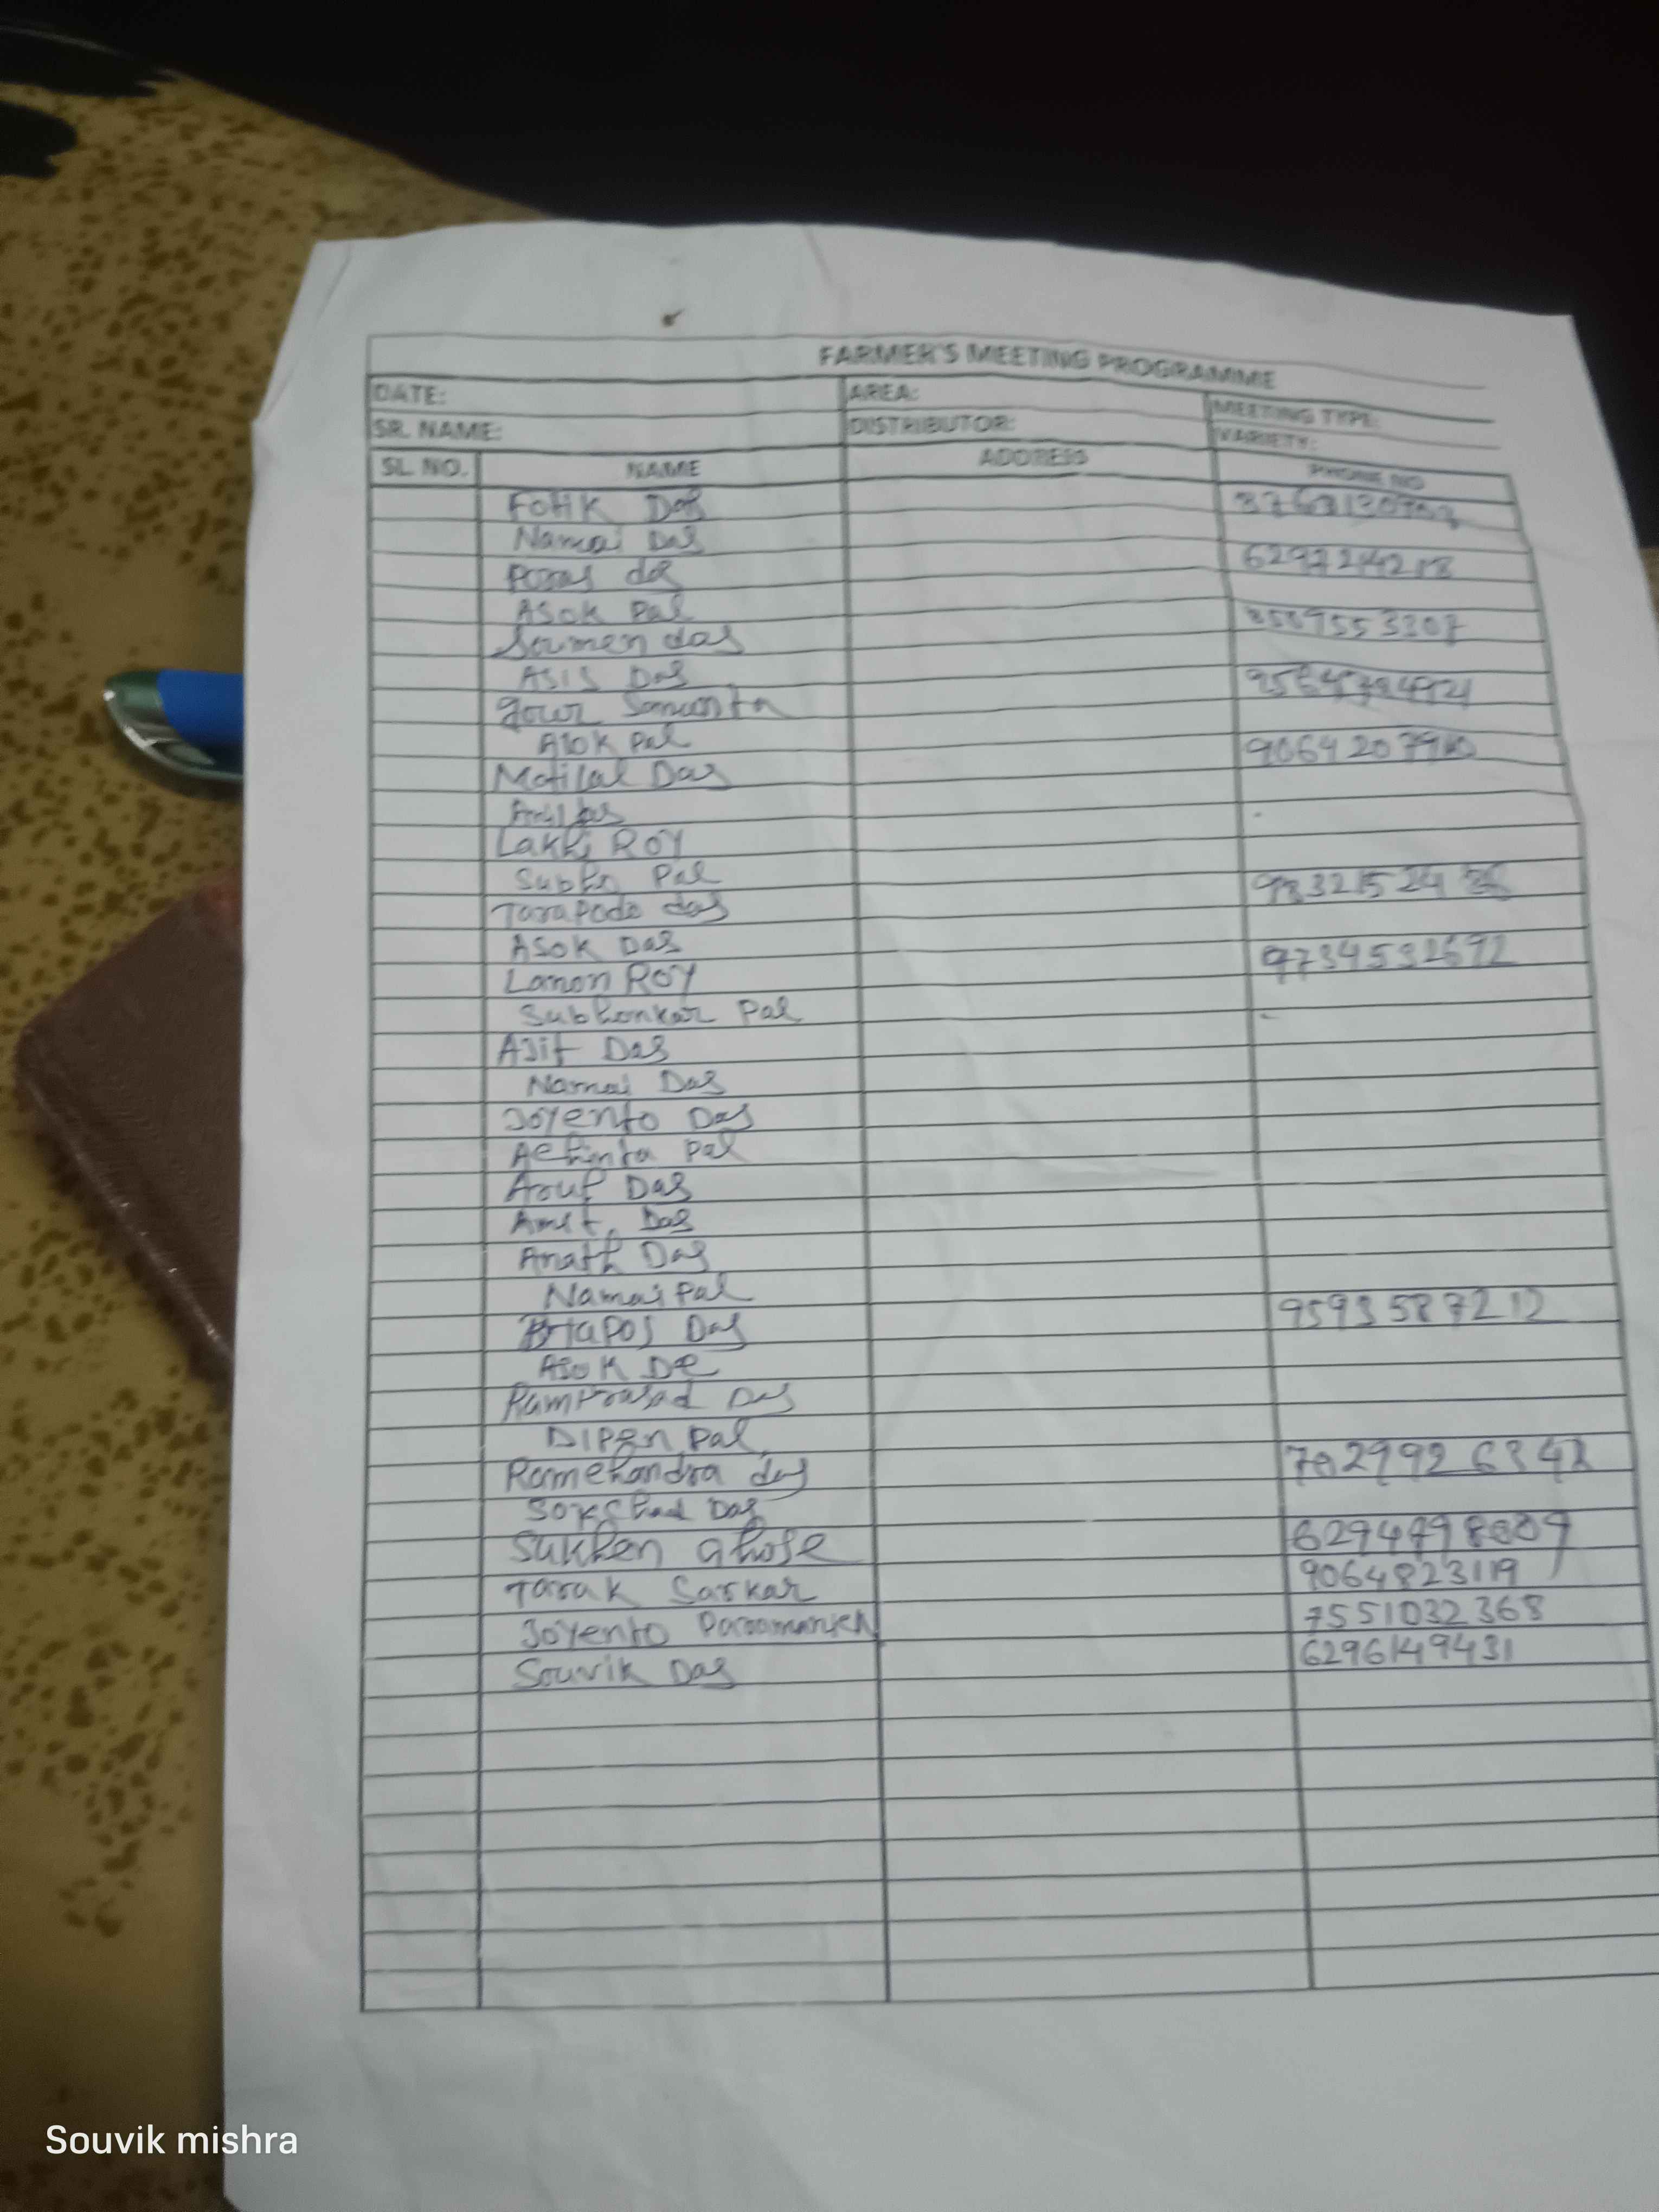 FARMER'S MEETING PROGRAMME
DATE: AREA: MEETING TYPE:
SR. NAME: DISTRIBUTOR: VARIETY:
SL NO. NAME ADDRESS PHONE NO
Fotik Das
Namai Das 6297214218
Poras das
Asok Pal 8589553307
Soumen das
ASIS Das
gour Samanta
Alok pal
Motilal Das
Lakhi ROY
Subho Pal
Tarapado das
ASOK Das 9734532692
Lonon ROY
Subhonkar Pal -
AJit Das
Namai Das
Joyento Das
Achinta pal
Arup Das
Amit Das
Anath Das
Namai Pal 9593587212
Das
Asok De
RamPrasad Das
DIPen Pal
Ramchandra das
Das
Sukhen ghose
Tarak Sarkar 9064823119
Joyento Paramanick 7551032368
Souvik Das 6296149431
Souvik mishra